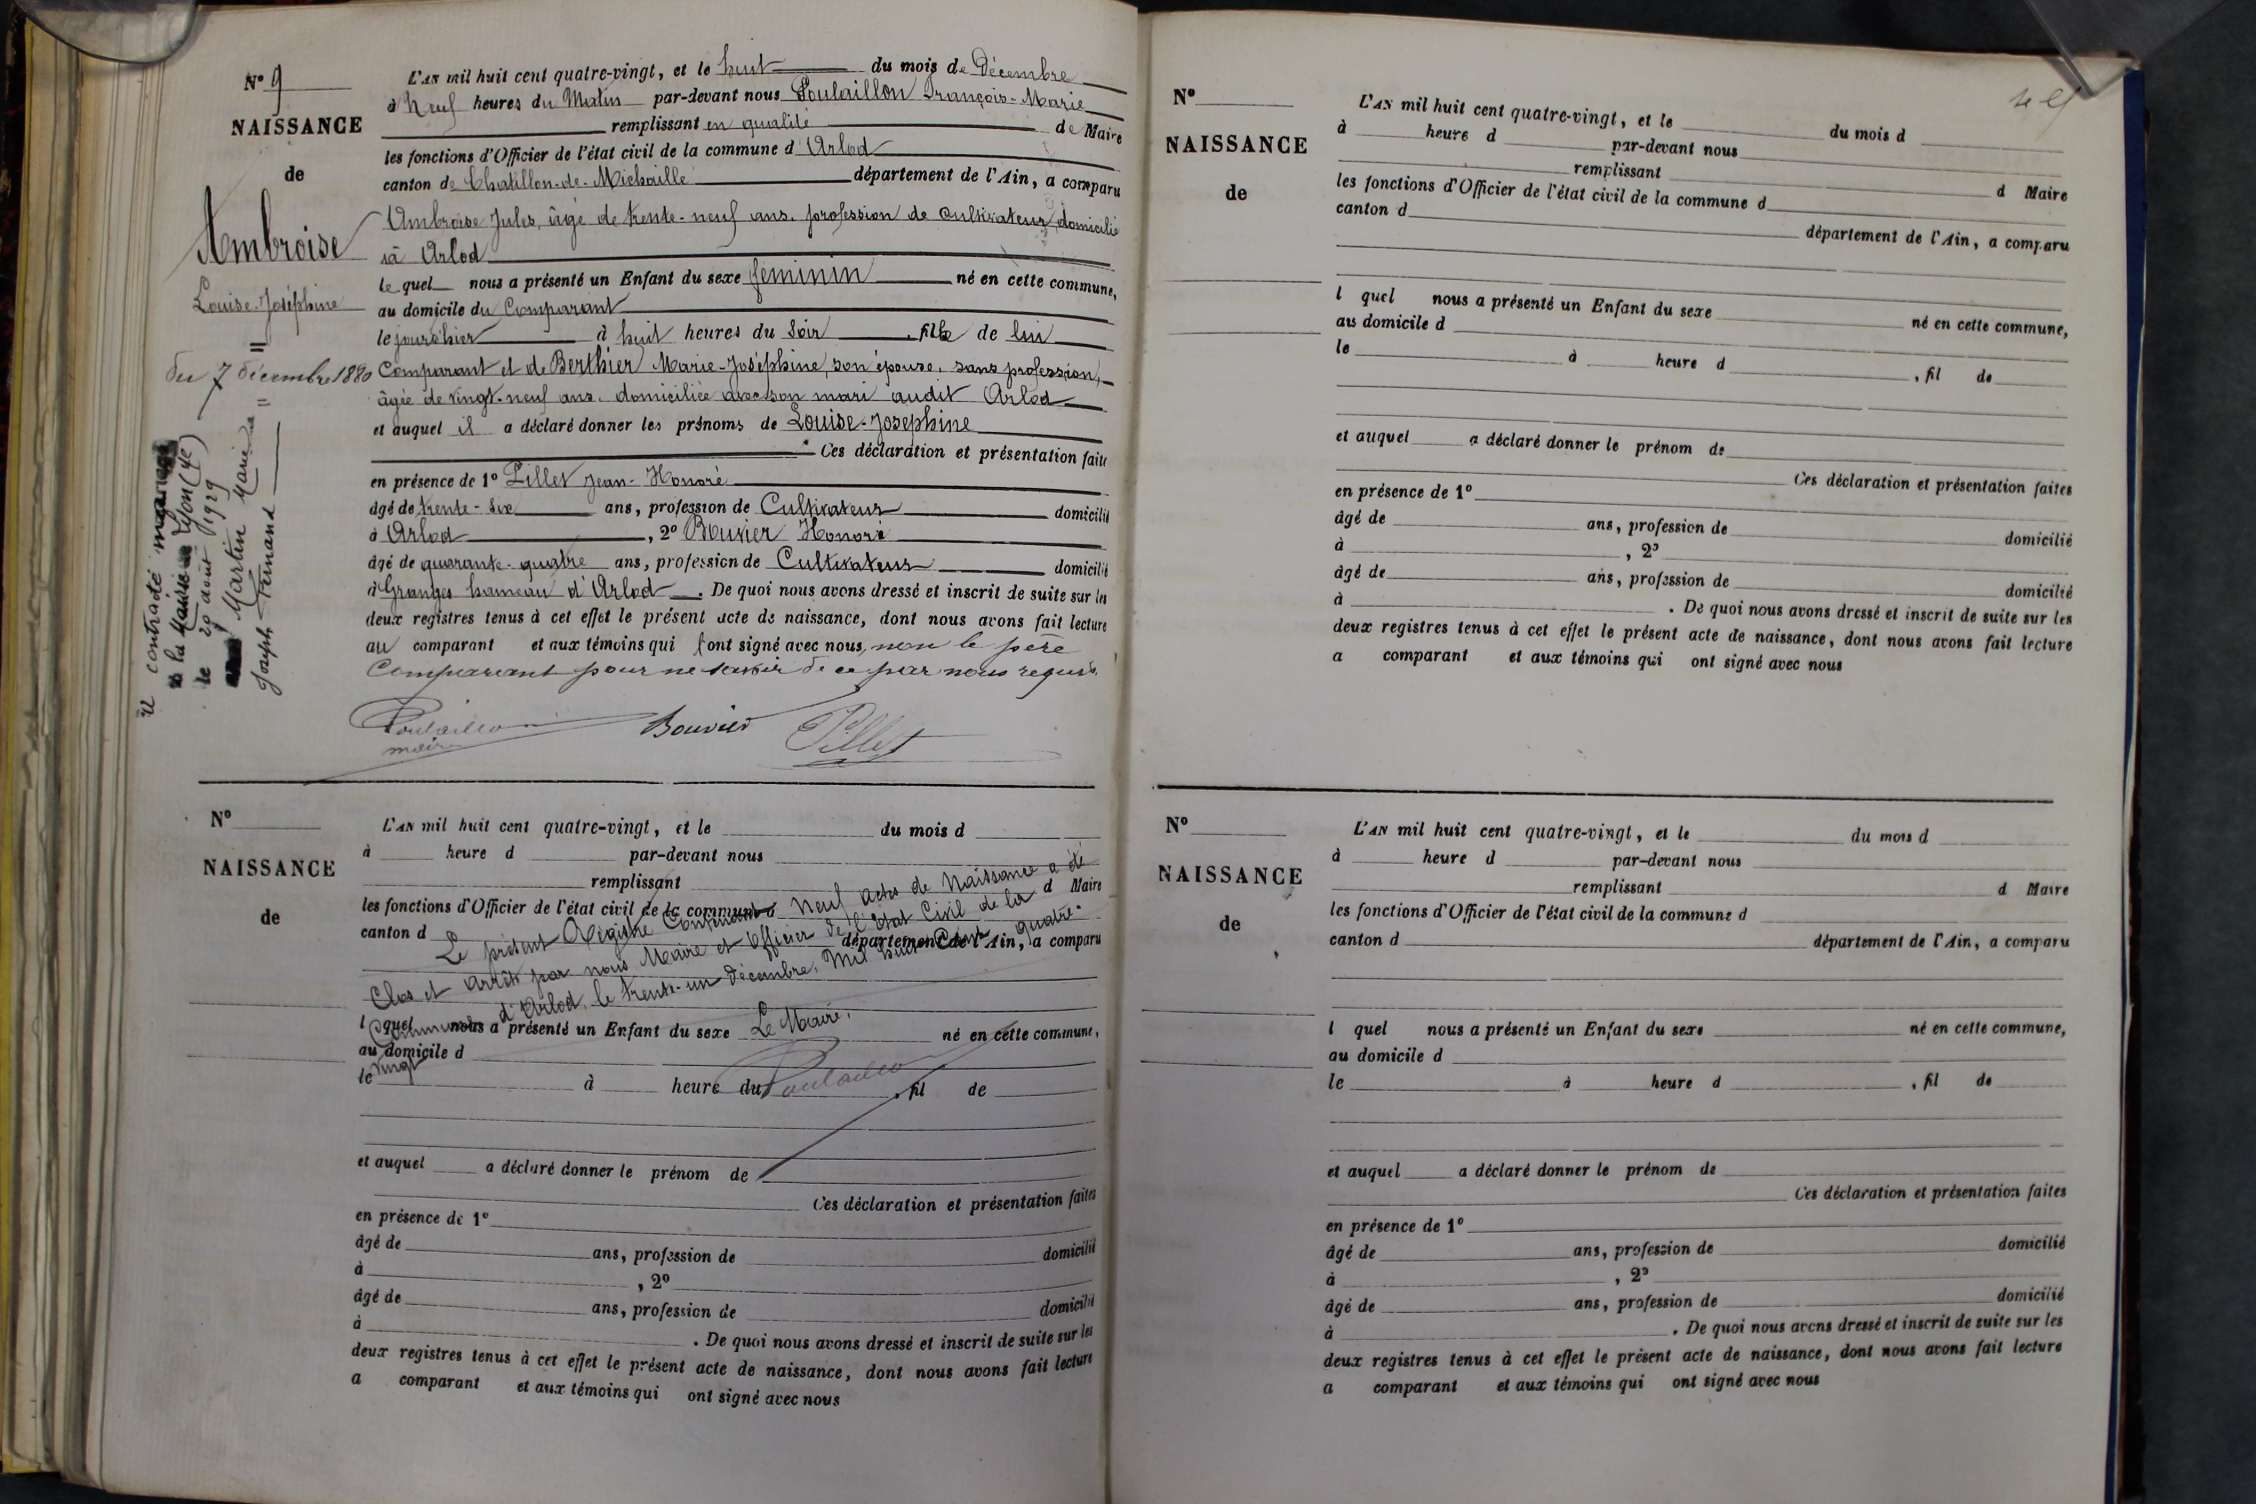 N° 9
NAISSANCE
de
Ambroise
Louise-Joséphine
du 7 décembre 1880
a contracté mariage
à la Mairie Lyon (4e)
le 29 août 1929
Martin Marie
Joseph Fernand
L'AN mil huit cent quatre-vingt, et le huit du mois de Décembre
à Neuf heures du Matin par-devant nous Poulaillon François-Marie
remplissant en qualité de Maire
les fonctions d'Officier de l'état civil de la commune d'Arlod
canton de Chatillon-de-Michaille département de l'Ain, a comparu
Ambroise Jules, âgé de trente-neuf ans, profession de cultivateur, domicilié
à Arlod
lequel nous a présenté un Enfant du sexe féminin né en cette commune,
au domicile du Comparant
le jour d'hier à huit heures du Soir, fille de lui
Comparant et de Berthier Marie-Joséphine, son épouse, sans profession,
âgée de vingt-neuf ans, domiciliée avec son mari audit Arlod
et auquel il a déclaré donner les prénoms de Louise-Josephine
Ces déclaration et présentation faites
en présence de 1° Pillet Jean-Honoré
âgé de trente-six ans, profession de Cultivateur domicilié
à Arlod, 2° Bouvier Honoré
âgé de quarante-quatre ans, profession de Cultivateur domicilié
à Granges hameau d'Arlod. De quoi nous avons dressé et inscrit de suite sur les
deux registres tenus à cet effet le présent acte de naissance, dont nous avons fait lecture
au comparant et aux témoins qui ont signé avec nous, non le père
Comparant pour ne savoir de ce par nous requis.
Poulaillon Bouvier Pillet
maire
N°
NAISSANCE
de
L'AN mil huit cent quatre-vingt, et le du mois d
à heure d par-devant nous
remplissant d Maire
les fonctions d'Officier de l'état civil de la commune d
canton d département de l'Ain, a comparu
Le présent Registre Contenant Neuf actes de Naissance a été
Clos et arrêté par nous Maire et Officier de l'Etat Civil de la
Commune d'Arlod, le trente-un décembre, Mil huit Cent quatre-
vingt
Le Maire,
Poulaillon
l quel nous a présenté un Enfant du sexe né en cette commune,
au domicile d
le à heure du , fil de
et auquel a déclaré donner le prénom de
Ces déclaration et présentation faites
en présence de 1°
âgé de ans, profession de domicilié
à , 2°
âgé de ans, profession de domicilié
à . De quoi nous avons dressé et inscrit de suite sur les
deux registres tenus à cet effet le présent acte de naissance, dont nous avons fait lecture
a comparant et aux témoins qui ont signé avec nous
N°
NAISSANCE
de
L'AN mil huit cent quatre-vingt, et le du mois d
à heure d par-devant nous
remplissant d Maire
les fonctions d'Officier de l'état civil de la commune d
canton d département de l'Ain, a comparu
l quel nous a présenté un Enfant du sexe né en cette commune,
au domicile d
le à heure d , fil de
et auquel a déclaré donner le prénom de
Ces déclaration et présentation faites
en présence de 1°
âgé de ans, profession de domicilié
à , 2°
âgé de ans, profession de domicilié
à . De quoi nous avons dressé et inscrit de suite sur les
deux registres tenus à cet effet le présent acte de naissance, dont nous avons fait lecture
a comparant et aux témoins qui ont signé avec nous
N°
NAISSANCE
de
L'AN mil huit cent quatre-vingt, et le du mois d
à heure d par-devant nous
remplissant d Maire
les fonctions d'Officier de l'état civil de la commune d
canton d département de l'Ain, a comparu
l quel nous a présenté un Enfant du sexe né en cette commune,
au domicile d
le à heure d , fil de
et auquel a déclaré donner le prénom de
Ces déclaration et présentation faites
en présence de 1°
âgé de ans, profession de domicilié
à , 2°
âgé de ans, profession de domicilié
à . De quoi nous avons dressé et inscrit de suite sur les
deux registres tenus à cet effet le présent acte de naissance, dont nous avons fait lecture
a comparant et aux témoins qui ont signé avec nous